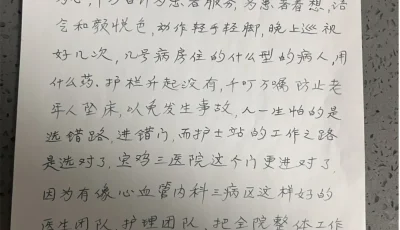 千方百计为患者服务,为患者着想,语
令和颜悦色,动作轻手轻脚,晚上巡视
好几次,几号病房住的什么型的病人,用
什么药.护栏升起没有,千叮万嘱防止老
年人坠床,以免发生事故,人一生怕的是
选错路,进错门,而护士站的工作之路
是选对了,宝鸡三医院这个门更进对了.
因为有像心血管内科三病区这样好的
医生团队,护理团队,把全院整体工作